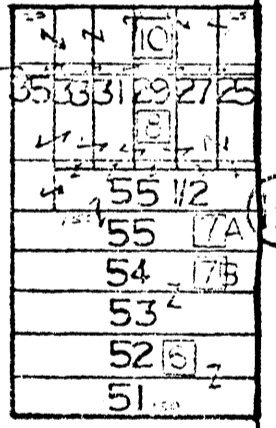 10
35 33 31 29 27 25
8
55 1/2
55 7A
54 7B
53
52 6
51